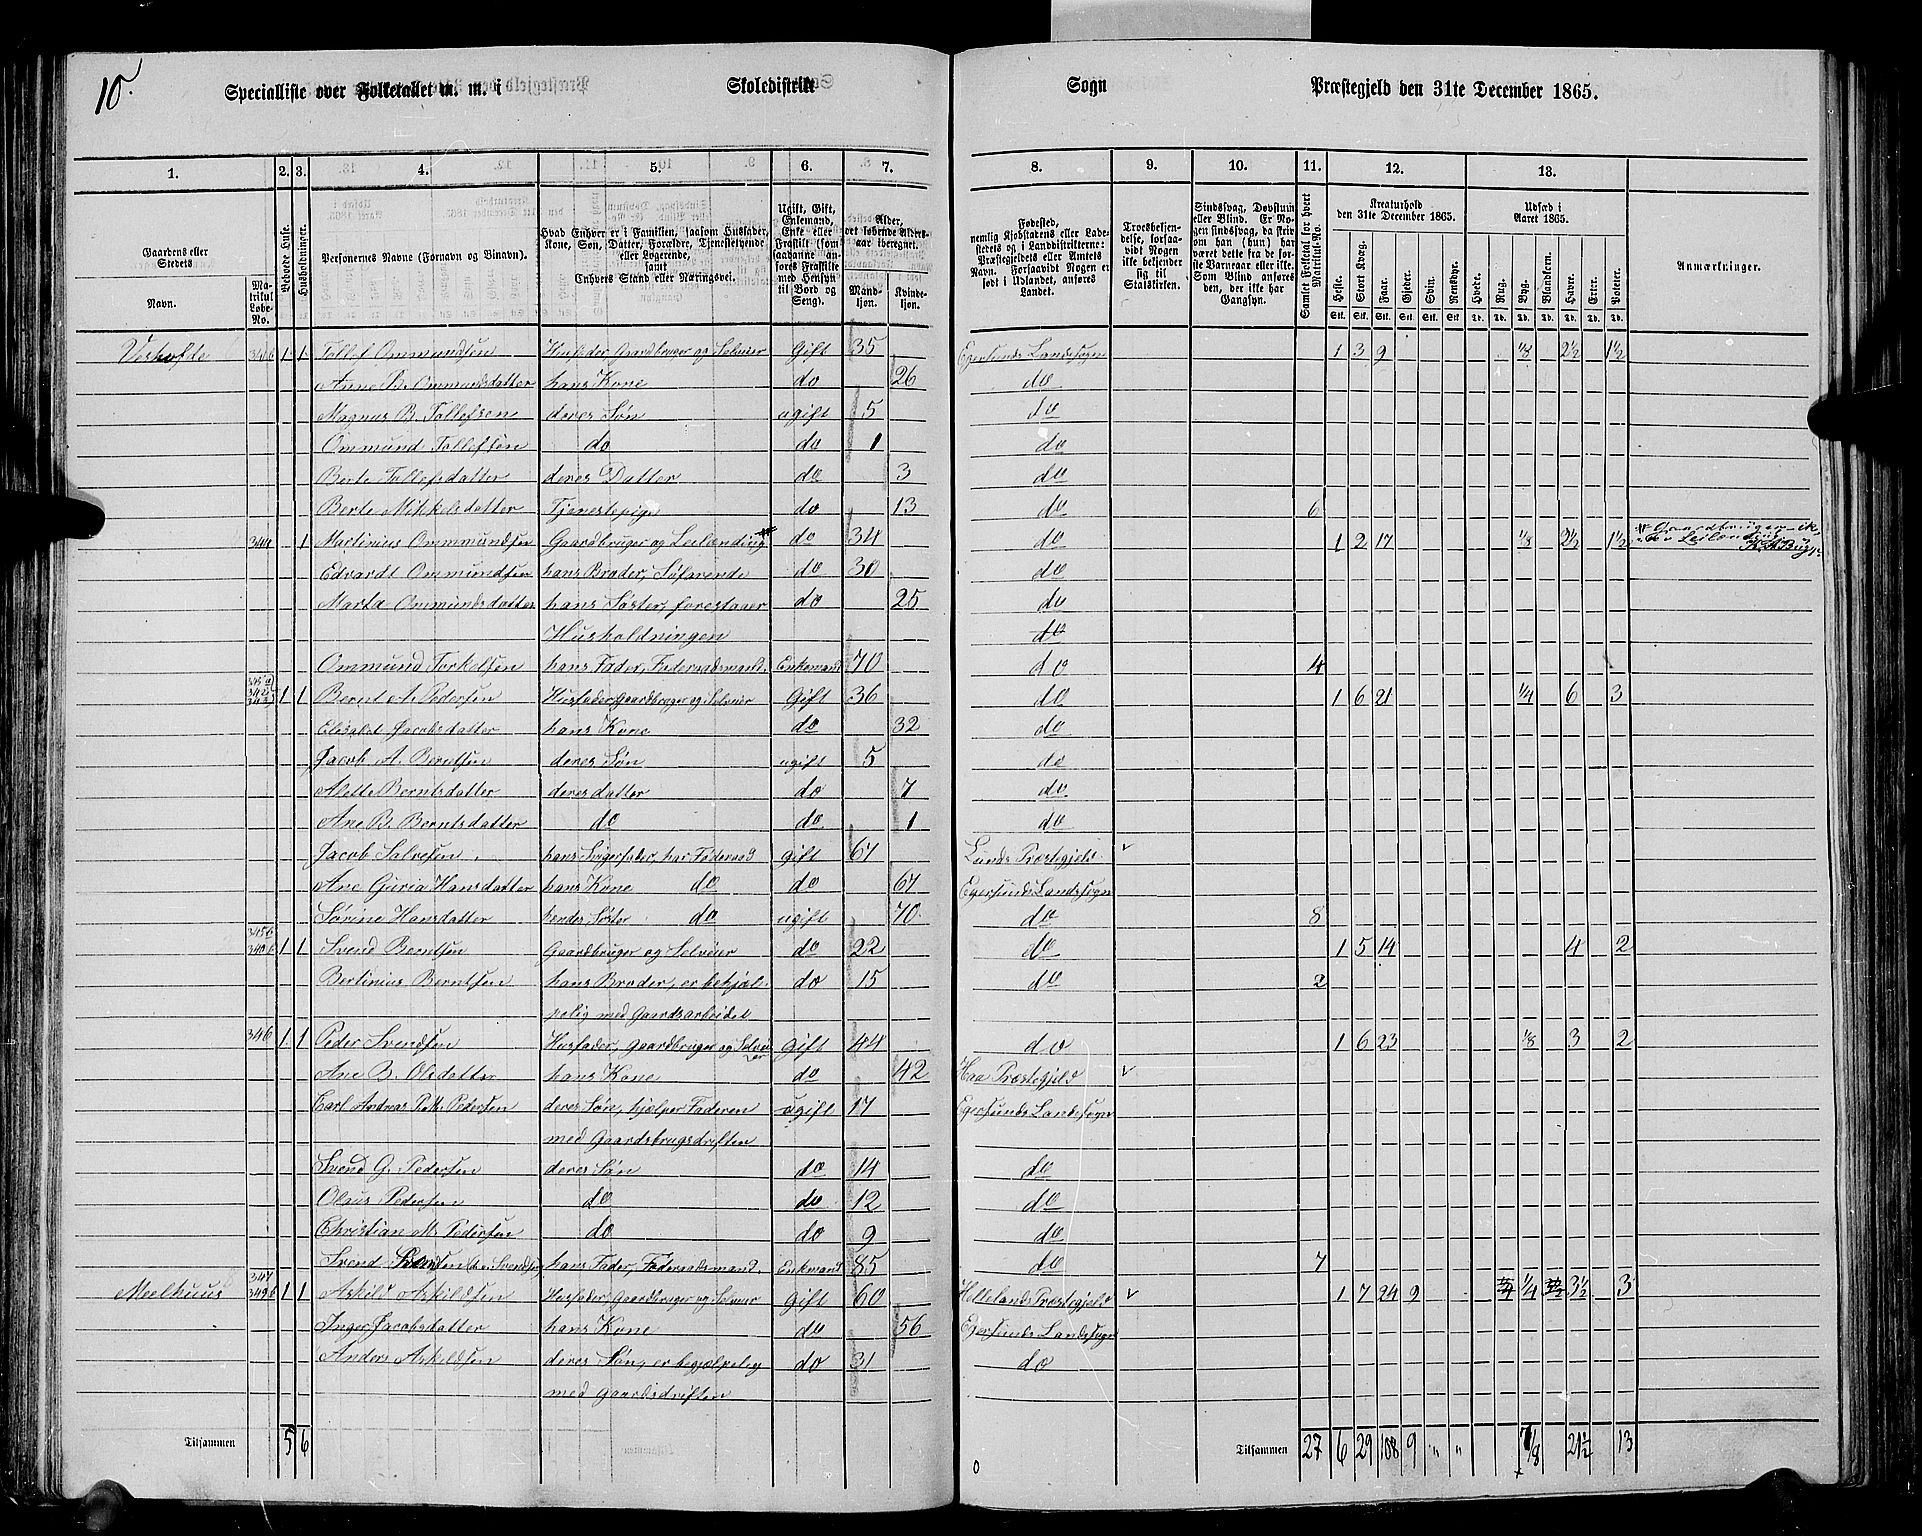 10.
Specialliste over Folketallet m. m. i Skoledistrikt Sogn Præstegjeld den 31te December 1865.
1. 2. 3. 4. 5. 6. 7. 8. 9. 10. 11. 12. 13.
Gaardens eller Stedets
Navn.
Matrikul Løbe-No.
Beboede Huse.
Husholdninger.
Personernes Navne (Fornavn og Binavn).
Hvad Enhver er i Familien, saasom Husfader, Kone, Søn, Datter, Forældre, Tjenestetyende eller Logerende, samt Enhvers Stand eller Næringsvei.
Ugift, Gift, Enkemand, Enke eller Fraskilt (som saadanne anføres Fraskilte med Hensyn til Bord og Seng).
Alder, det løbende Aldersaar iberegnet.
Mandkjøn. Kvindekjøn.
Fødested, nemlig Kjøbstadens eller Ladestedets og i Landdistrikterne: Præstegjeldets eller Amtets Navn. Forsaavidt Nogen er født i Udlandet, anføres Landet.
Troesbekjendelse, forsaavidt Nogen ikke bekjender sig til Statskirken.
Sindssvag, Døvstum eller Blind. Er Nogen sindssvag, da skriv om han (hun) har været dette fra de første Barneaar eller ikke. Som Blind anføres den, der ikke har Gangsyn.
Samlet Folketal for hvert Matrikul-No.
Kreaturhold den 31te December 1865.
Heste. Stort Kvæg. Faar. Gjeder. Svin. Rensdyr.
Udsæd i Aaret 1865.
Hvede. Rug. Byg. Blandkorn. Havre. Erter. Poteter.
Anmærkninger.
1 1 Tollef Ommundsen Husfader Gaardbruger og Selveier Gift 35 Egersunds Landsogn 1 3 9 1/8 2½ 1½
Anne B. Ommundsdatter hans Kone do 26 do
Magnus B. Tollefsen deres Søn ugift 5 do
Ommund Tollefsøn do do 1 do
Berte Tollefsdatter deres Datter do 3 do
Berte Mikkelsdatter Tjenestepige do 13 do 6
344 1 Martinius Ommundsen Gaardbruger og Leilænding do 34 do 1 2 17 1/8 2½ 1½
Edvardt Ommundsen hans Broder, Søfarende do 30 do
Marta Ommundsdatter hans Søster, forestaaer do 25 do
Husholdningen do
Ommund Torkelsen hans Fader, Føderaadsmand. Enkemand 70 do 4
1 1 Bernt A. Pedersen Husfader Gaardbruger og Selveier Gift 36 do 1 6 21 1/4 6 3
Elisabet Jacobsdatter hans Kone do 32 do
Jacob A. Berntsen deres Søn ugift 5 do
Alette Berntsdatter deres datter do 7 do
Ane B. Berntsdatter do do 1 do
Jacob Salvesen hans Svigerfader, har Føderaad gift 67 Lunds Præstegjeld
Ane Guria Hansdatter hans Kone do do 67 Egersunds Landssogn
Sørine Hansdatter hendes Søster do ugift 70 do 8
1 1 Svend Berntsen Gaardbruger og Selveier do 22 do 1 5 14 4 2
Bertinius Berntsen hans Broder, er behjæl- do 15 do 2
pelig med Gaardsarbeidet
346 1 1 Peder Svendsen Husfader, Gaardbruger og Selveier Gift 44 do 1 6 23 1/8 3 2
Ane B. Olsdatter hans Kone do 42 Haa Præstegjeld
Carl Andreas Pedersen deres Søn, hjælper Faderen ugift 17 Egersunds Landssogn
med Gaardsbrugsdriften
Svend G. Pedersen deres Søn do 14 do
Olaus Pedersen do do 12 do
Christian M. Pedersen do do 9 do
Svend Svendsen hans Fader, Føderaadsmand. Enkmand 85 do 7
347
Meelhuus 1 1 Askild Askildsen Husfader, Gaardbruger og Selveier Gift 60 Hellelands Præstegjeld 1 7 24 9 1/4 3½ 3
Inger Jacobsdatter hans Kone do 56 Egersunds Landssogn
Anders Askildsen deres Søn, er begjælpelig do 31 do
med Gaardsdriften
Tilsammen 5 6 Tilsammen 27 6 29 108 9 " " 7/8 21½ 13